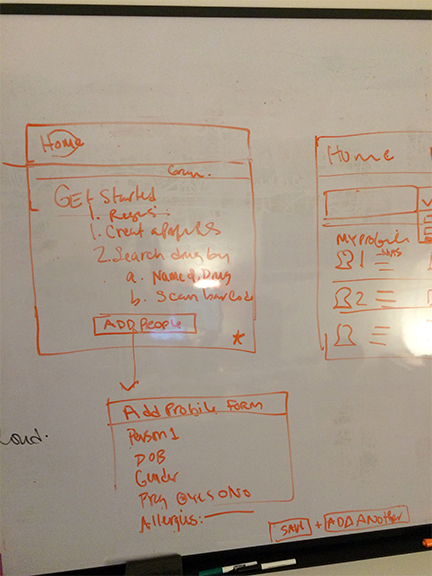 Home
Get Started
1.
1. Creat a profiles
2. Search drug by
a. Name of Drug
b. Scan barcode
ADD People
Add Profile Form
Person 1
DOB
Gender
Preg yes No
Allergies:
SAVE + ADD ANother
Home
My Profiles
1
2